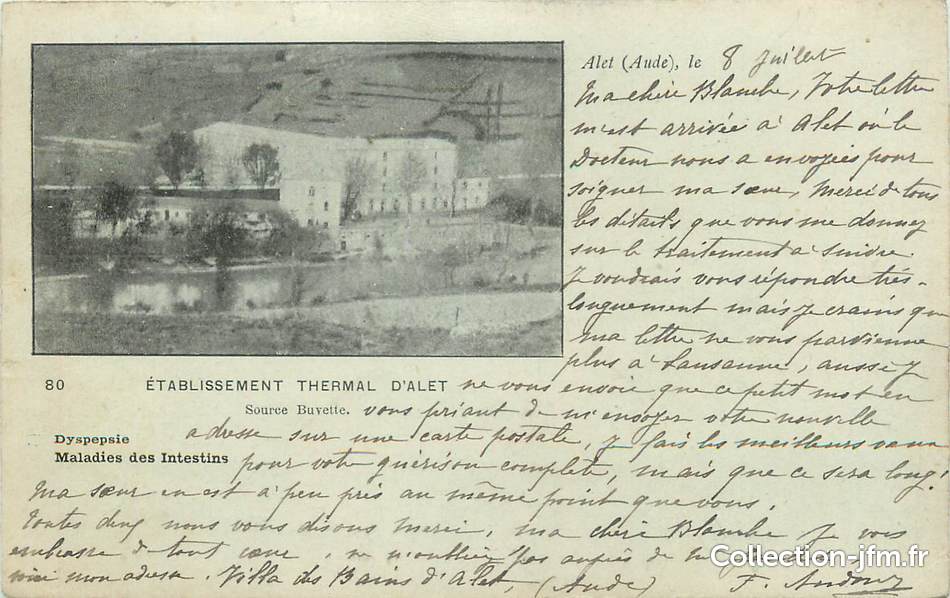 Alet (Aude), le 8 Juillet
Ma chère Blanche, Votre lettre
m'est arrivée à Alet où le
Docteur nous a envoyées pour
soigner ma sœur, Merci de tous
les détails que vous me donnez
sur le traitement à suivre.
Je voudrais vous répondre très-
longuement mais je crains que
ma lettre ne vous parvienne
plus à Lausanne, aussi je
80 ÉTABLISSEMENT THERMAL D'ALET ne vous envoie que ce petit mot en
Source Buvette. vous priant de m'envoyer votre nouvelle
adresse sur une carte postale, je fais les meilleurs vœux
Dyspepsie
Maladies des Intestins pour votre guérison complète, mais que ce sera long.
Ma sœur en est à peu près au même point que vous.
Toutes deux nous vous disons merci, ma chère Blanche je vous
embrasse de tout cœur, ne m'oubliez pas auprès de
voici mon adresse. Villa des Bains d'Alet, (Aude) F.
Collection-jfm.fr